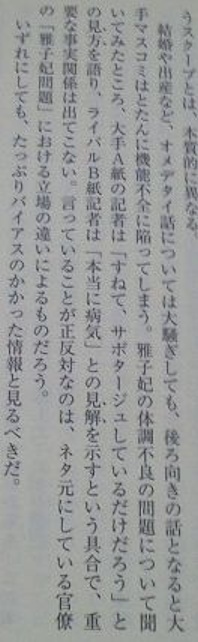 うスクープとは、本質的に異なる。
結婚や出産など、オメデタイ話については大騒ぎしても、後ろ向きの話となると大
手マスコミはとたんに機能不全に陥ってしまう。雅子妃の体調不良の問題について聞
いてみたところ、大手A紙の記者は「すねて、サボタージュしているだけだろう」と
の見方を語り、ライバルB紙記者は「本当に病気」との見解を示すという具合で、重
要な事実関係は出てこない。言っていることが正反対なのは、ネタ元にしている官僚
の「雅子妃問題」における立場の違いによるものだろう。
いずれにしても、たっぷりバイアスのかかった情報と見るべきだ。